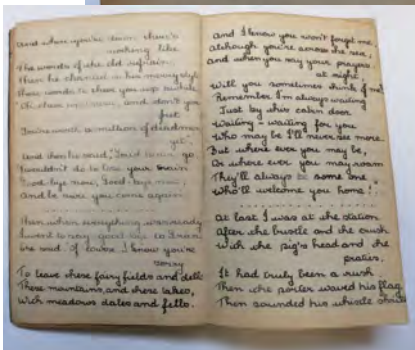 And when you're down, there's
nothing like
The words of the old refrain.
Then he chimed in his merry style
These words to cheer you up
Oh cheer and don't you
fret
You're worth a million of deadmen
yet.
And then he said, "You'd better go
I wouldn't do to lose your train
Good-bye now, Good-bye now,
And be sure you come again
Then when everything was ready
I went to say good-bye to
He said. Of course I know you're
sorry
To leave these fairy fields and dells
These mountains, and these lakes,
With meadows dales and fells.
And I know you won't forget me,
Although you're across the sea,
And when you say your prayers
at night,
Will you sometimes think of me?
Remember I'm always waiting
Just by his cabin door
Waiting - waiting for you
Who may be I'll never see more.
But where ever you may be,
Or where ever you may roam
They'll always be some one
Who'll welcome you home!
At last I was at the station
After the bustle and the crush
With the pig's head and the
praties.
It had truly been a rush.
Then the porter waved his flag,
Then sounded his whistle